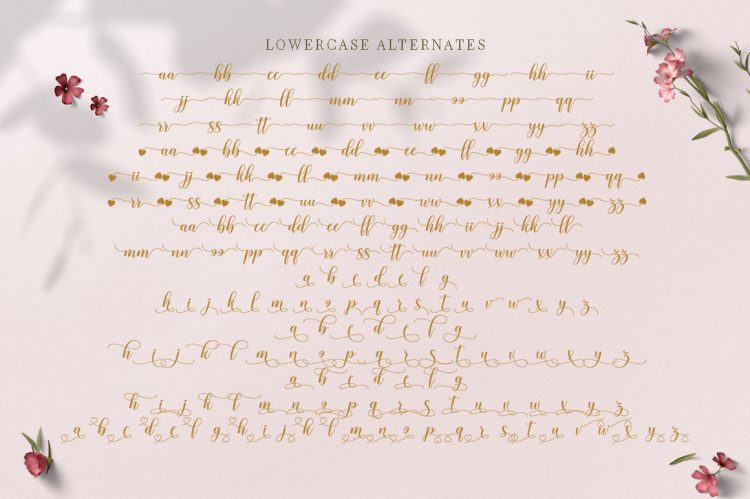 LOWERCASE ALTERNATES
aa bb cc dd ee ff gg hh ii
jj kk ll mm nn oo pp qq
rr ss tt uu vv ww xx yy zz
aa bb cc dd ee ff gg hh
ii jj kk ll mm nn oo pp qq
rr ss tt uu vv ww xx yy zz
aa bb cc dd ee ff gg hh ii jj kk ll
mm nn oo pp qq rr ss tt uu vv ww xx yy zz
a b c d e f g
h i j k l m n o p q r s t u v w x y z
a b c d e f g
h i j k l m n o p q r s t u v w x y z
a b c d e f g
h i j k l m n o p q r s t u v w x y z
a b c d e f g h i j k l m n o p q r s t u v w x y z